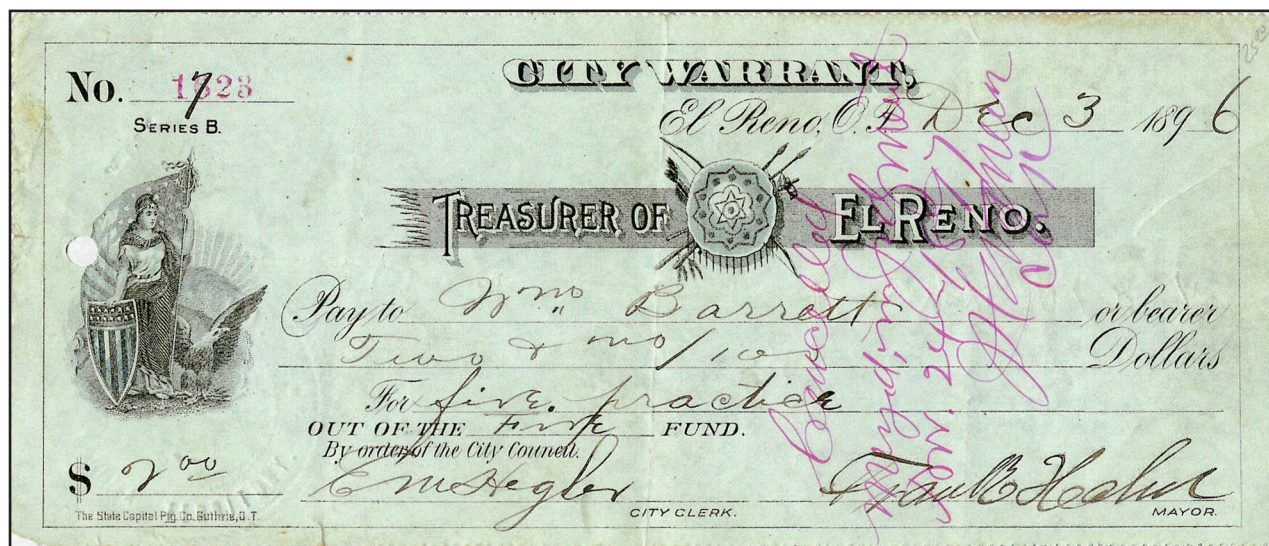 25.00
CITY WARRANT,
No. 1723
SERIES B.
El Reno, O.T. Dec 3 1896
TREASURER OF EL RENO.
Pay to Wm Barrett or bearer
Two & no/100 Dollars
For fire practice
OUT OF THE Fire FUND.
By order of the City Council.
$ 2 00
E M Hegler
CITY CLERK.
Frank B Hahn
MAYOR.
The State Capital Ptg. Co. Guthrie, O.T.
Cancelled